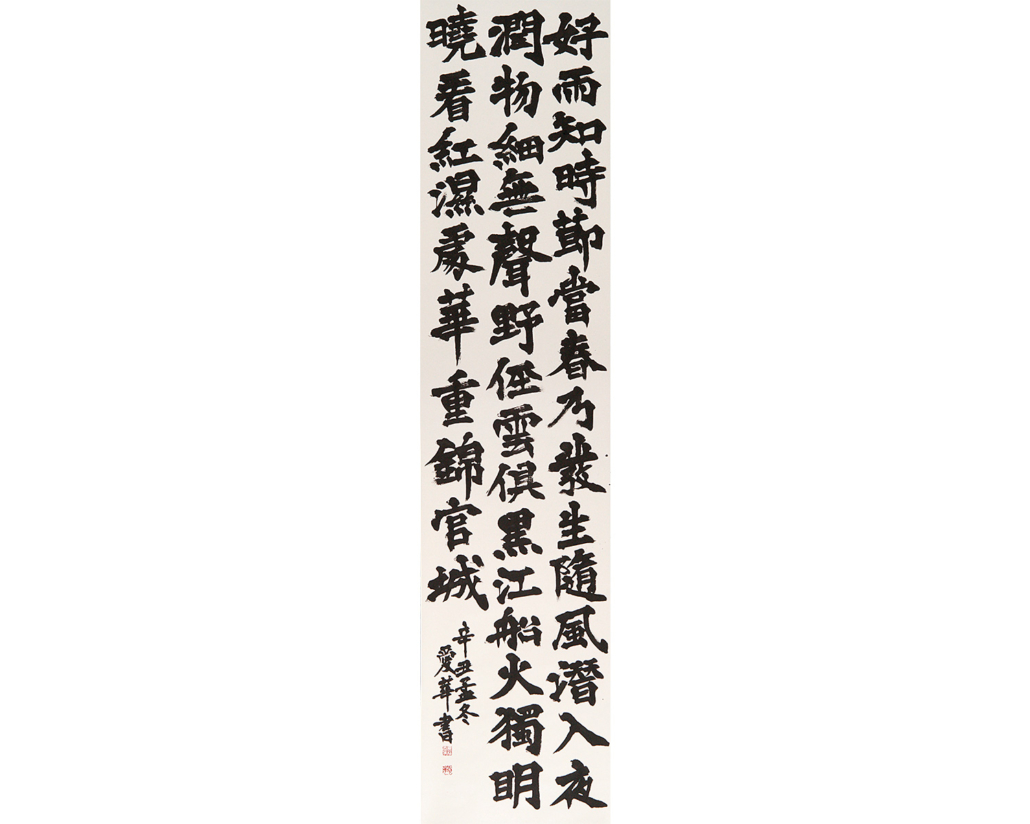 好雨知時節當春乃發生隨風潛入夜
潤物細無聲野徑雲俱黑江船火獨明
曉看紅濕處華重錦官城
辛丑孟冬
愛華書